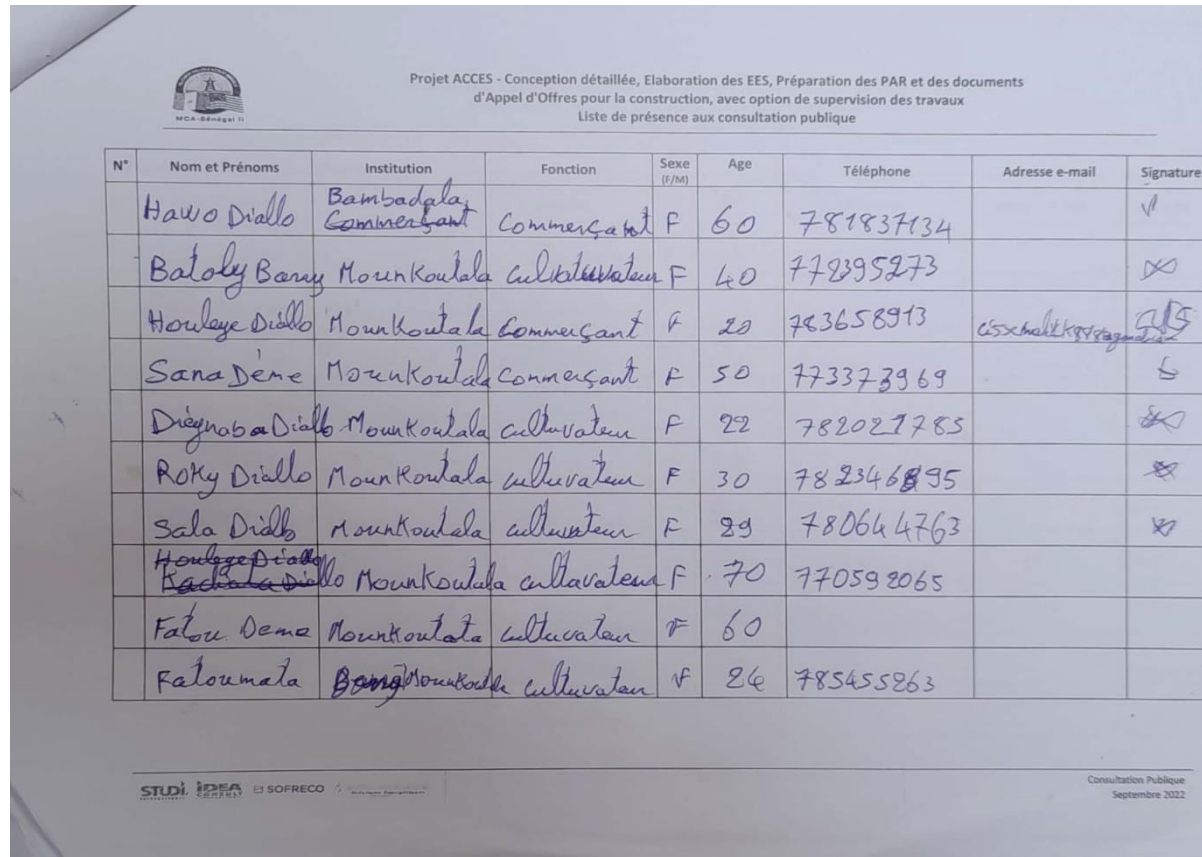 MCA-Sénégal II
Projet ACCES - Conception détaillée, Elaboration des EES, Préparation des PAR et des documents
d'Appel d'Offres pour la construction, avec option de supervision des travaux
Liste de présence aux consultation publique
N° Nom et Prénoms Institution Fonction Sexe (F/M) Age Téléphone Adresse e-mail Signature
Hawo Diallo Bambadala Commerçant Commerçant F 60 781837134
Batoly Barry Mounkoutala F 40 778395273
Houleye Diallo Mounkoutala Commerçant F 783658913
Sana Dème Mounkoutala Commerçant F 50 773373969
Diégnaba Diallo Mounkoutala cultuvateur F 22
Roky Diallo Mounkoutala cultuvateur F 30
Sala Diallo Mounkoutala cultuvateur F 29 780644763
Houleye Diallo
Diallo Mounkoutala cultavateur F 70 770592065
Fatou Deme Mounkoutata cultuvateur F 60
Fatoumata cultuvateur F 785455263
STUDI IDEA CONSULT SOFRECO
Consultation Publique
Septembre 2022